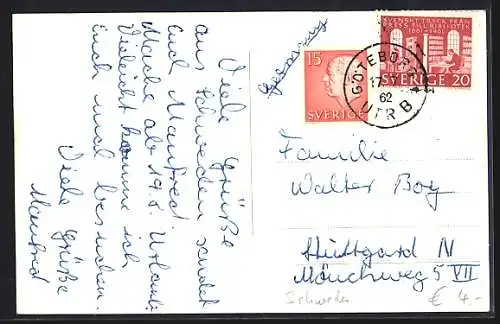 Viele Grüße
aus Schweden sendet
euch Manfred.
Mache ab 19.8. Urlaub
Vieleicht komm ich
euch mal besuchen.
Viele Grüße
Manfred
Germany
15
SVERIGE
SVENSKT TRYCK FRÅN
PRESS TILL BIBLIOTEK
1661-1961
SVERIGE 20
GÖTEBORG
62
UTR B
Familie
Walter Boy
Stuttgard N
Mönchweg 5 VII
Schweden
€ 4.-